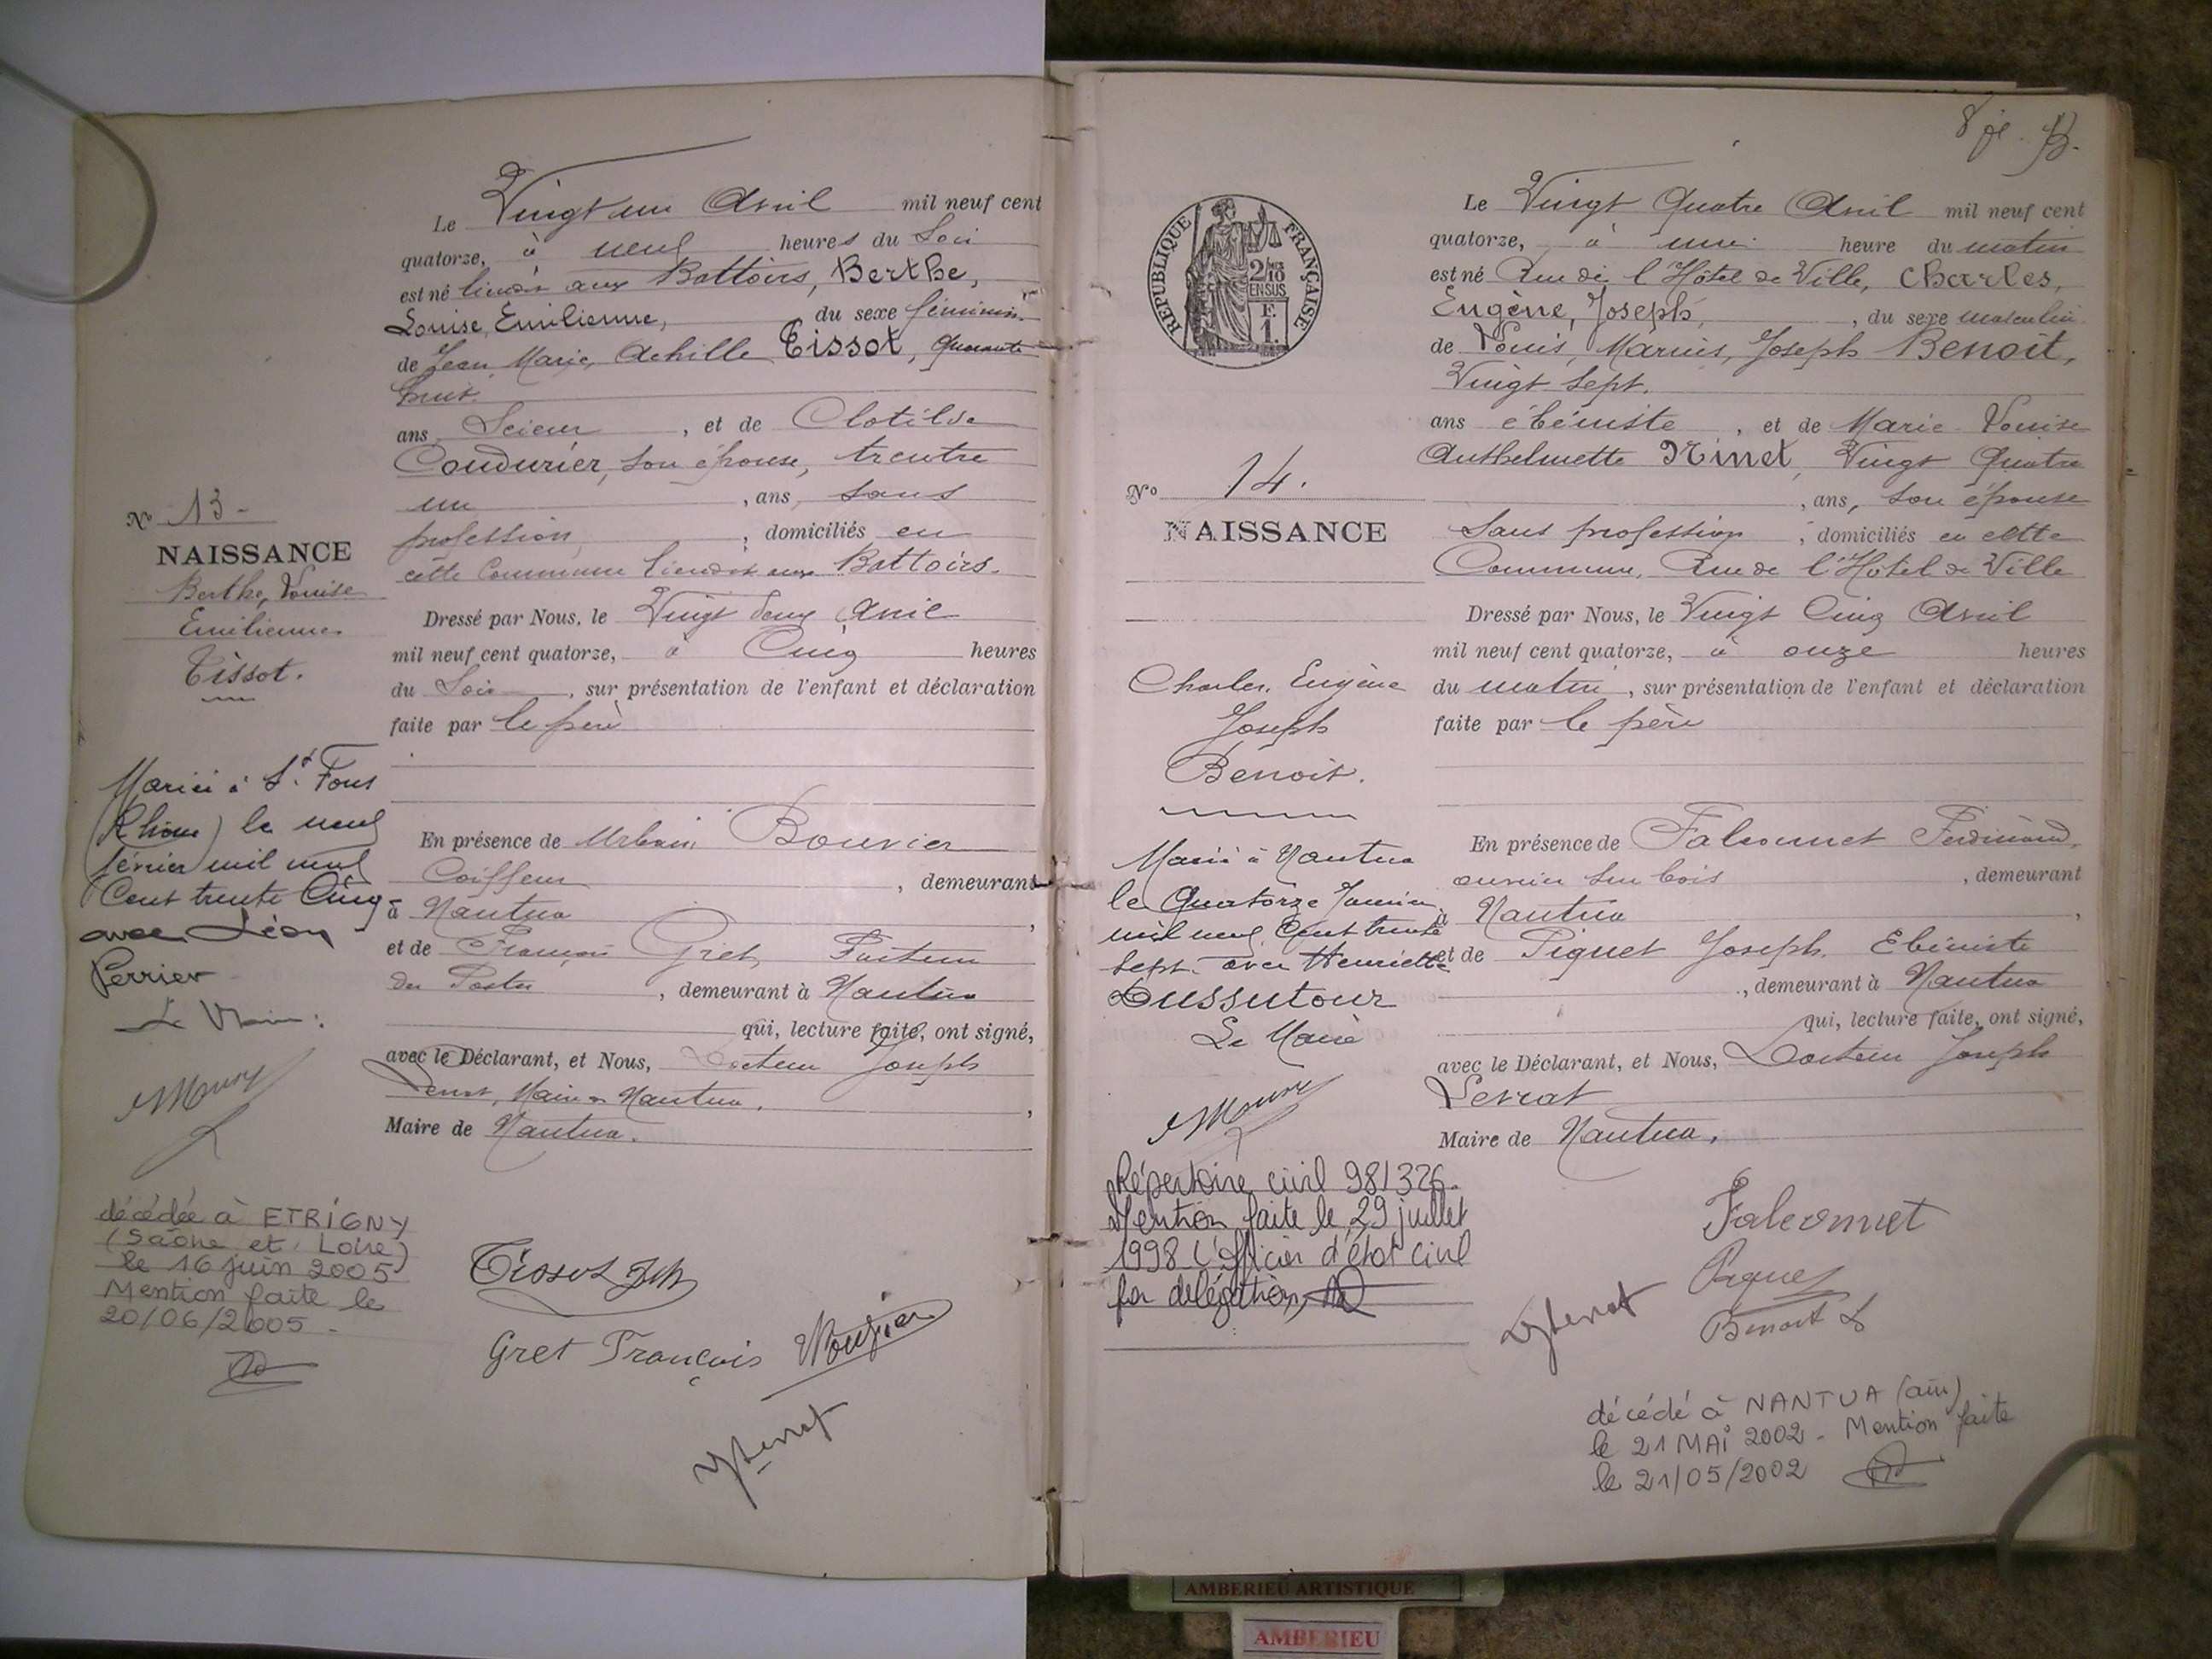 Le Vingt un Avril mil neuf cent
quatorze, à neuf heures du Soir
est né lieudit aux Battoirs, Berthe,
Louise, Emilienne, du sexe féminin
de Jean Marie, Achille Tissot, Quarante
huit
ans Scieur, et de Clotilde
Coudurier, son épouse, trente
un, ans, sans
profession, domiciliés en
cette Commune lieudit aux Battoirs.
Dressé par Nous, le Vingt deux Avril
mil neuf cent quatorze, à Cinq heures
du Soir, sur présentation de l'enfant et déclaration
faite par le père
En présence de Urbain Bouvier
Coiffeur, demeurant
à Nantua,
et de François Gret, Facteur
des Postes, demeurant à Nantua
qui, lecture faite, ont signé,
avec le Déclarant, et Nous, Docteur Joseph
Levrat, Maire de Nantua,
Maire de Nantua.
No 13 -
NAISSANCE
Berthe, Louise
Emilienne
Tissot.
Mariée à St Fons
(Rhône) le neuf
février mil neuf
Cent trente Cinq
avec Léon
Perrier
Le Maire:
décédée à ETRIGNY
(Saône et Loire)
le 16 juin 2005
Mention faite le
20/06/2005 -
Tissot
Gret François
8 fe. 13.
RÉPUBLIQUE FRANÇAISE
2/10 EN SUS
F. 1.
Le Vingt Quatre Avril mil neuf cent
quatorze, à une heure du matin
est né Rue de l'Hôtel de Ville, Charles,
Eugène, Joseph, du sexe masculin
de Louis, Marius, Joseph Benoit,
Vingt Sept.
ans ébéniste, et de Marie Louise
Anthelmette Ninet, Vingt Quatre
, ans, son épouse
Sans profession, domiciliés en cette
Commune, Rue de l'Hôtel de Ville
Dressé par Nous, le Vingt Cinq Avril
mil neuf cent quatorze, à onze heures
du matin, sur présentation de l'enfant et déclaration
faite par le père
En présence de Falconnet Ferdinand,
ouvrier sur bois, demeurant
à Nantua,
et de Piquet Joseph, Ebéniste
, demeurant à Nantua
qui, lecture faite, ont signé,
avec le Déclarant, et Nous, Docteur Joseph
Levrat
Maire de Nantua,
No 14.
NAISSANCE
Charles, Eugène
Joseph
Benoit.
Marié à Nantua
le Quatorze Janvier
mil neuf Cent trente
Sept avec Henriette
Dussutour
Le Maire
Répertoire civil 981326.
Mention faite le 29 juillet
1998 L'officier d'état civil
par délégation,
Falconnet
Piquet
Benoit L
décédé à NANTUA (ain)
le 21 MAi 2002 - Mention faite
le 21/05/2002
AMBERIEU ARTISTIQUE
AMBERIEU